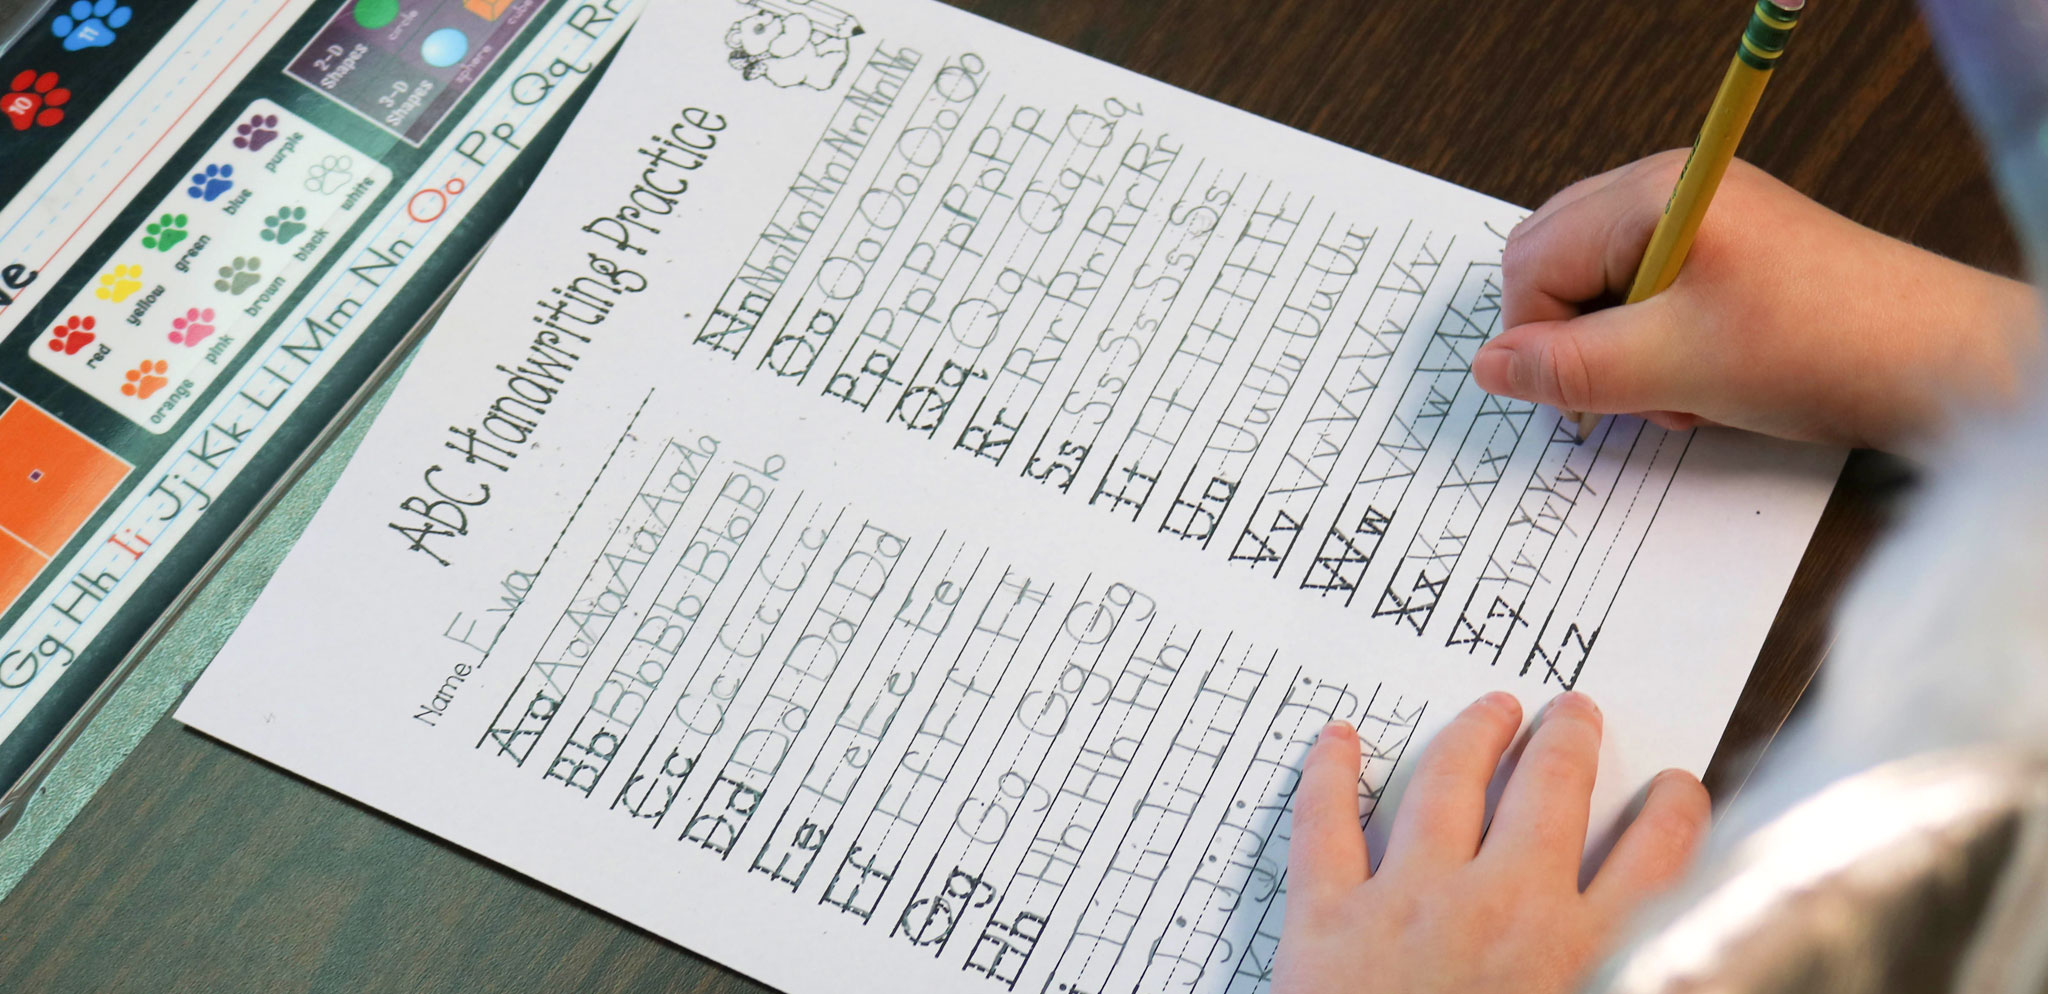 ABC Handwriting Practice
Name Ewa
Aa Aa Aa Aa Aa Aa Aa
Bb Bb Bb Bb Bb Bb
Cc Cc Cc Cc Cc
Dd Dd Dd Dd
Ee Ee Ee Ee
Ff Ff Ff Ff Ff
Gg Gg Gg Gg
Hh Hh Hh Hh
Nn Nn Nn Nn Nn Nn Nn Nn
Oo Oo Oo Oo Oo
Pp Pp Pp Pp Pp
Qq Qq Qq Qq
Rr Rr Rr Rr Rr
Ss Ss Ss Ss Ss
Tt Tt Tt Tt Tt Tt
Uu Uu Uu Uu Uu
Vv Vv Vv Vv Vv
Ww Ww Ww
Xx Xx Xx X
Yy Yy Yy Yy
Zz
11
10
2-D Shapes
circle
3-D Shapes
sphere
cube
red yellow green blue purple
orange pink brown black white
Gg Hh Ii Jj Kk Ll Mm Nn Oo Pp Qq Rr